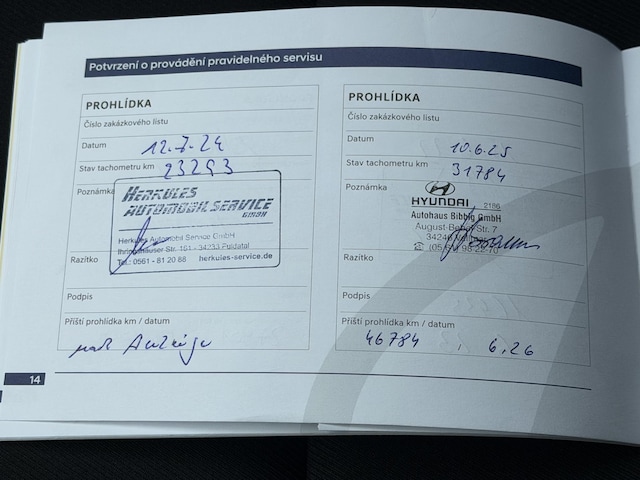 Potvrzení o provádění pravidelného servisu
PROHLÍDKA
Číslo zakázkového listu
Datum 12.7.24
Stav tachometru km 23293
Poznámka
HERKULES
AUTOMOBIL SERVICE
GMBH
Herkules Automobil Service GmbH
Ihringshäuser Str. 161 - 34233 Fuldatal
Tel.: 0561 - 81 20 88 herkules-service.de
Razítko
Podpis
Příští prohlídka km / datum
nach Anzeige
PROHLÍDKA
Číslo zakázkového listu
Datum 10.6.25
Stav tachometru km 31784
Poznámka
HYUNDAI 2186
Autohaus Bibbig GmbH
August-Bebel-Str. 7
Razítko
Podpis
Příští prohlídka km / datum
46784, 6.26
14